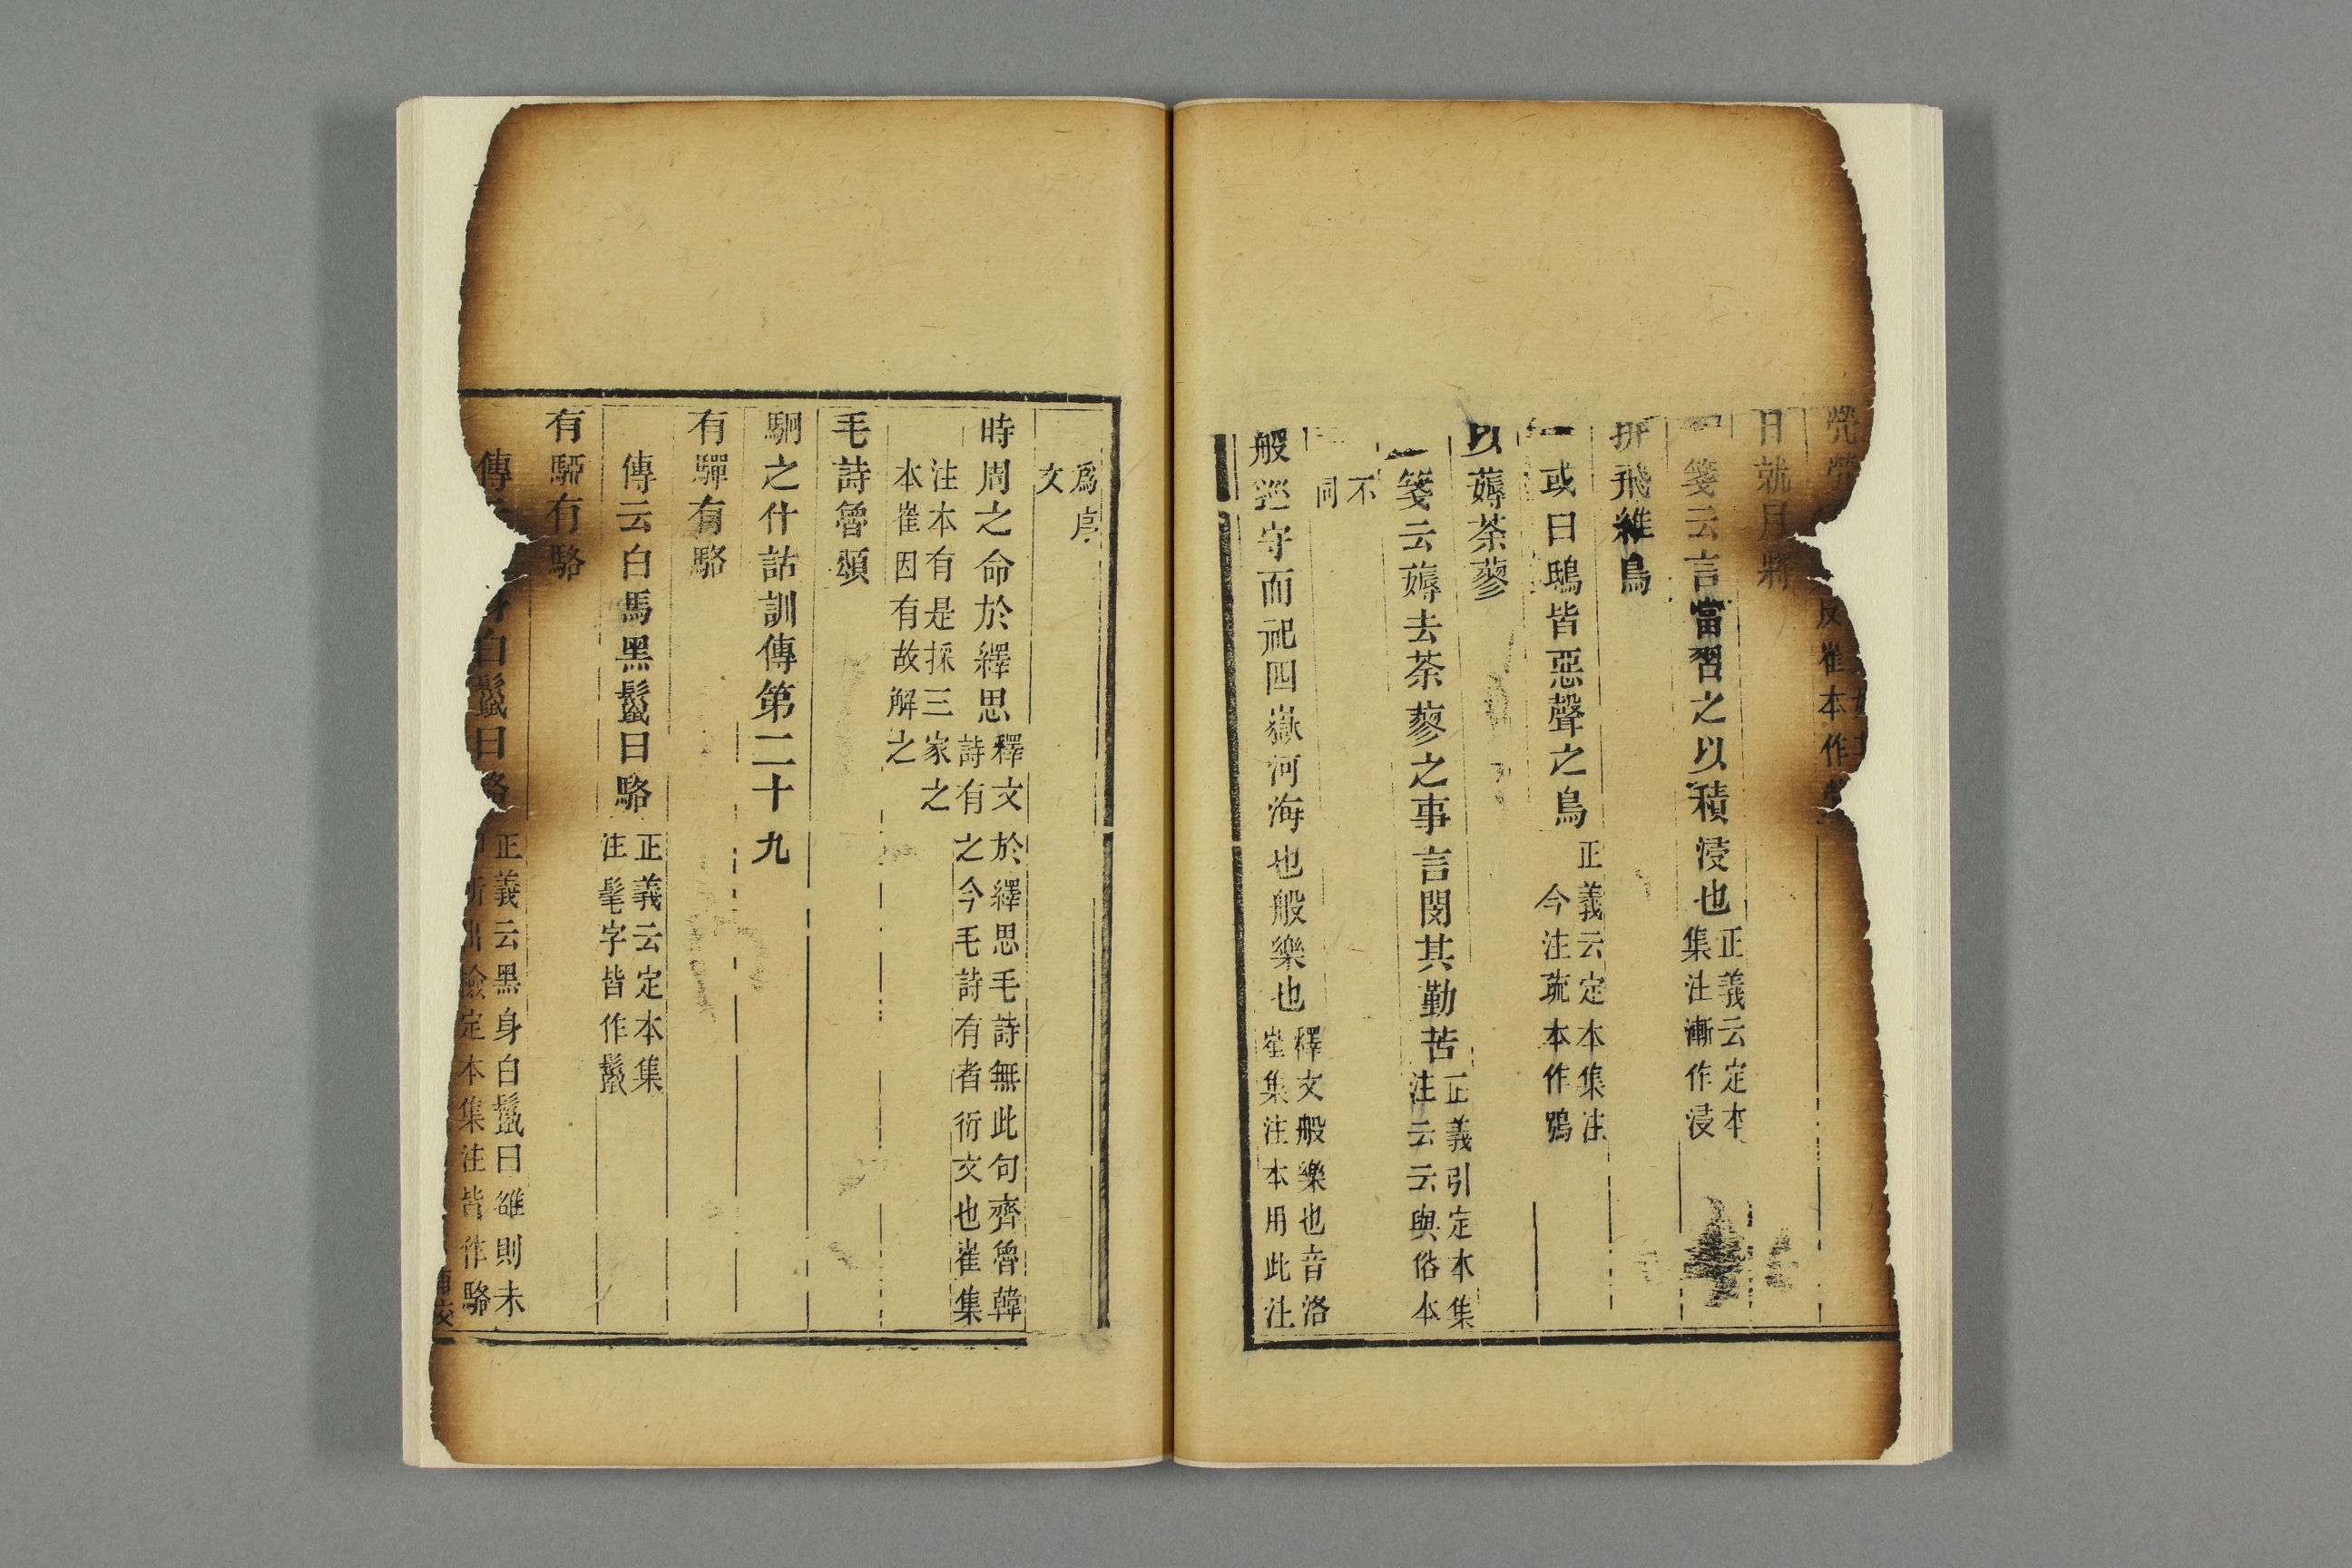 反崔本作
日就月將
箋云言當習之以積浸也正義云定本
集注漸作浸
拚飛維鳥
或曰鴟皆惡聲之鳥正義云定本集注
今注疏本作鴞
以薅荼蓼
箋云薅去荼蓼之事言閔其勤苦正義引定本集
注云云與俗本
不
同
般巡守而祀四嶽河海也般樂也釋文般樂也音洛
崔集注本用此注
爲序
文
時周之命於繹思釋文於繹思毛詩無此句齊魯韓
詩有之今毛詩有者衍文也崔集
注本有是採三家之
本崔因有故解之
毛詩魯頌
駉之什詁訓傳第二十九
有驒有駱
傳云白馬黑鬣曰駱正義云定本集
注髦字皆作鬣
有騢有駱
傳身白鬣曰駱正義云黑身白鬣曰雒則未
檢定本集注皆作駱